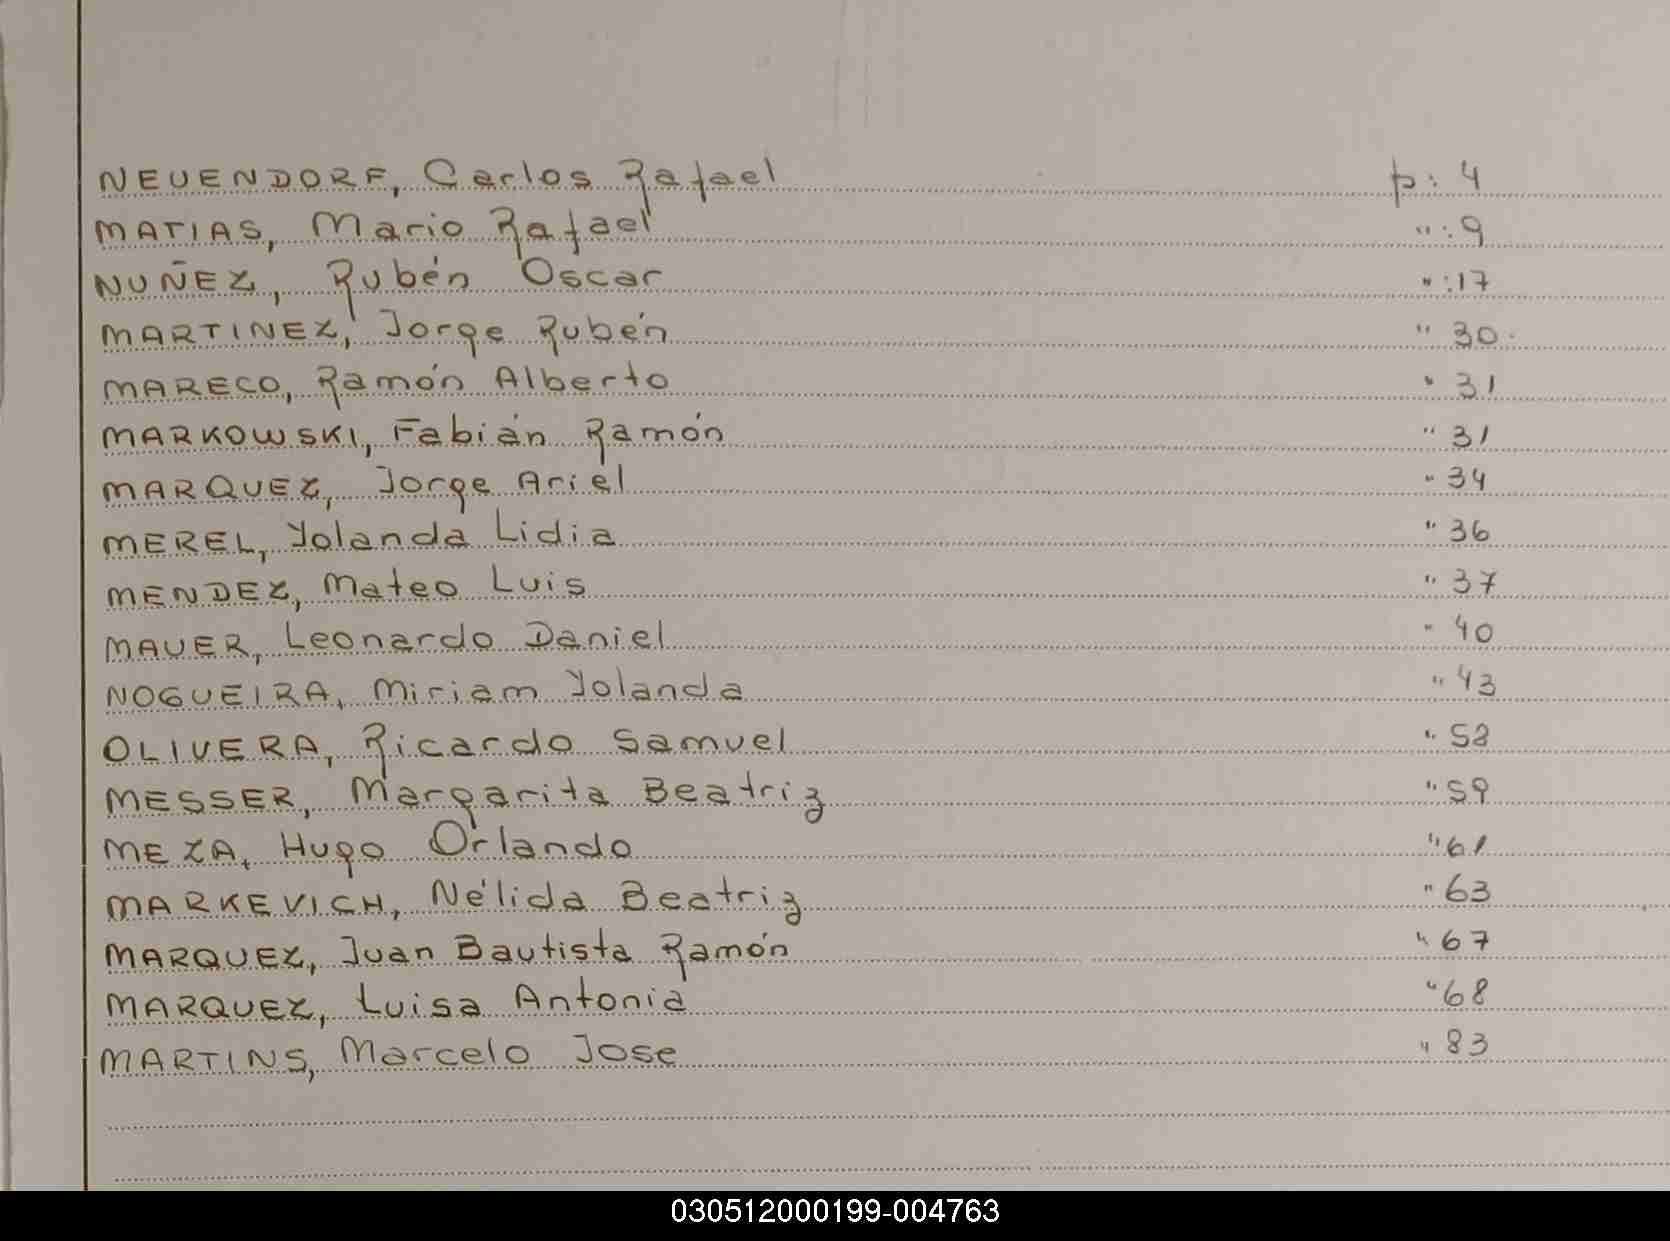 NEUENDORF, Carlos Rafael p: 4
MATIAS, Mario Rafael " : 9
NUÑEZ, Rubén Oscar " : 17
MARTINEZ, Jorge Rubén " 30
MARECO, Ramón Alberto " 31
MARKOWSKI, Fabián Ramón " 31
MARQUEZ, Jorge Ariel " 34
MEREL, Yolanda Lidia " 36
MENDEZ, Mateo Luis " 37
MAUER, Leonardo Daniel " 40
NOGUEIRA, Miriam Yolanda " 43
OLIVERA, Ricardo Samuel " 58
MESSER, Margarita Beatriz " 59
MEZA, Hugo Orlando " 61
MARKEVICH, Nélida Beatriz " 63
MARQUEZ, Juan Bautista Ramón " 67
MARQUEZ, Luisa Antonia " 68
MARTINS, Marcelo Jose " 83
030512000199-004763